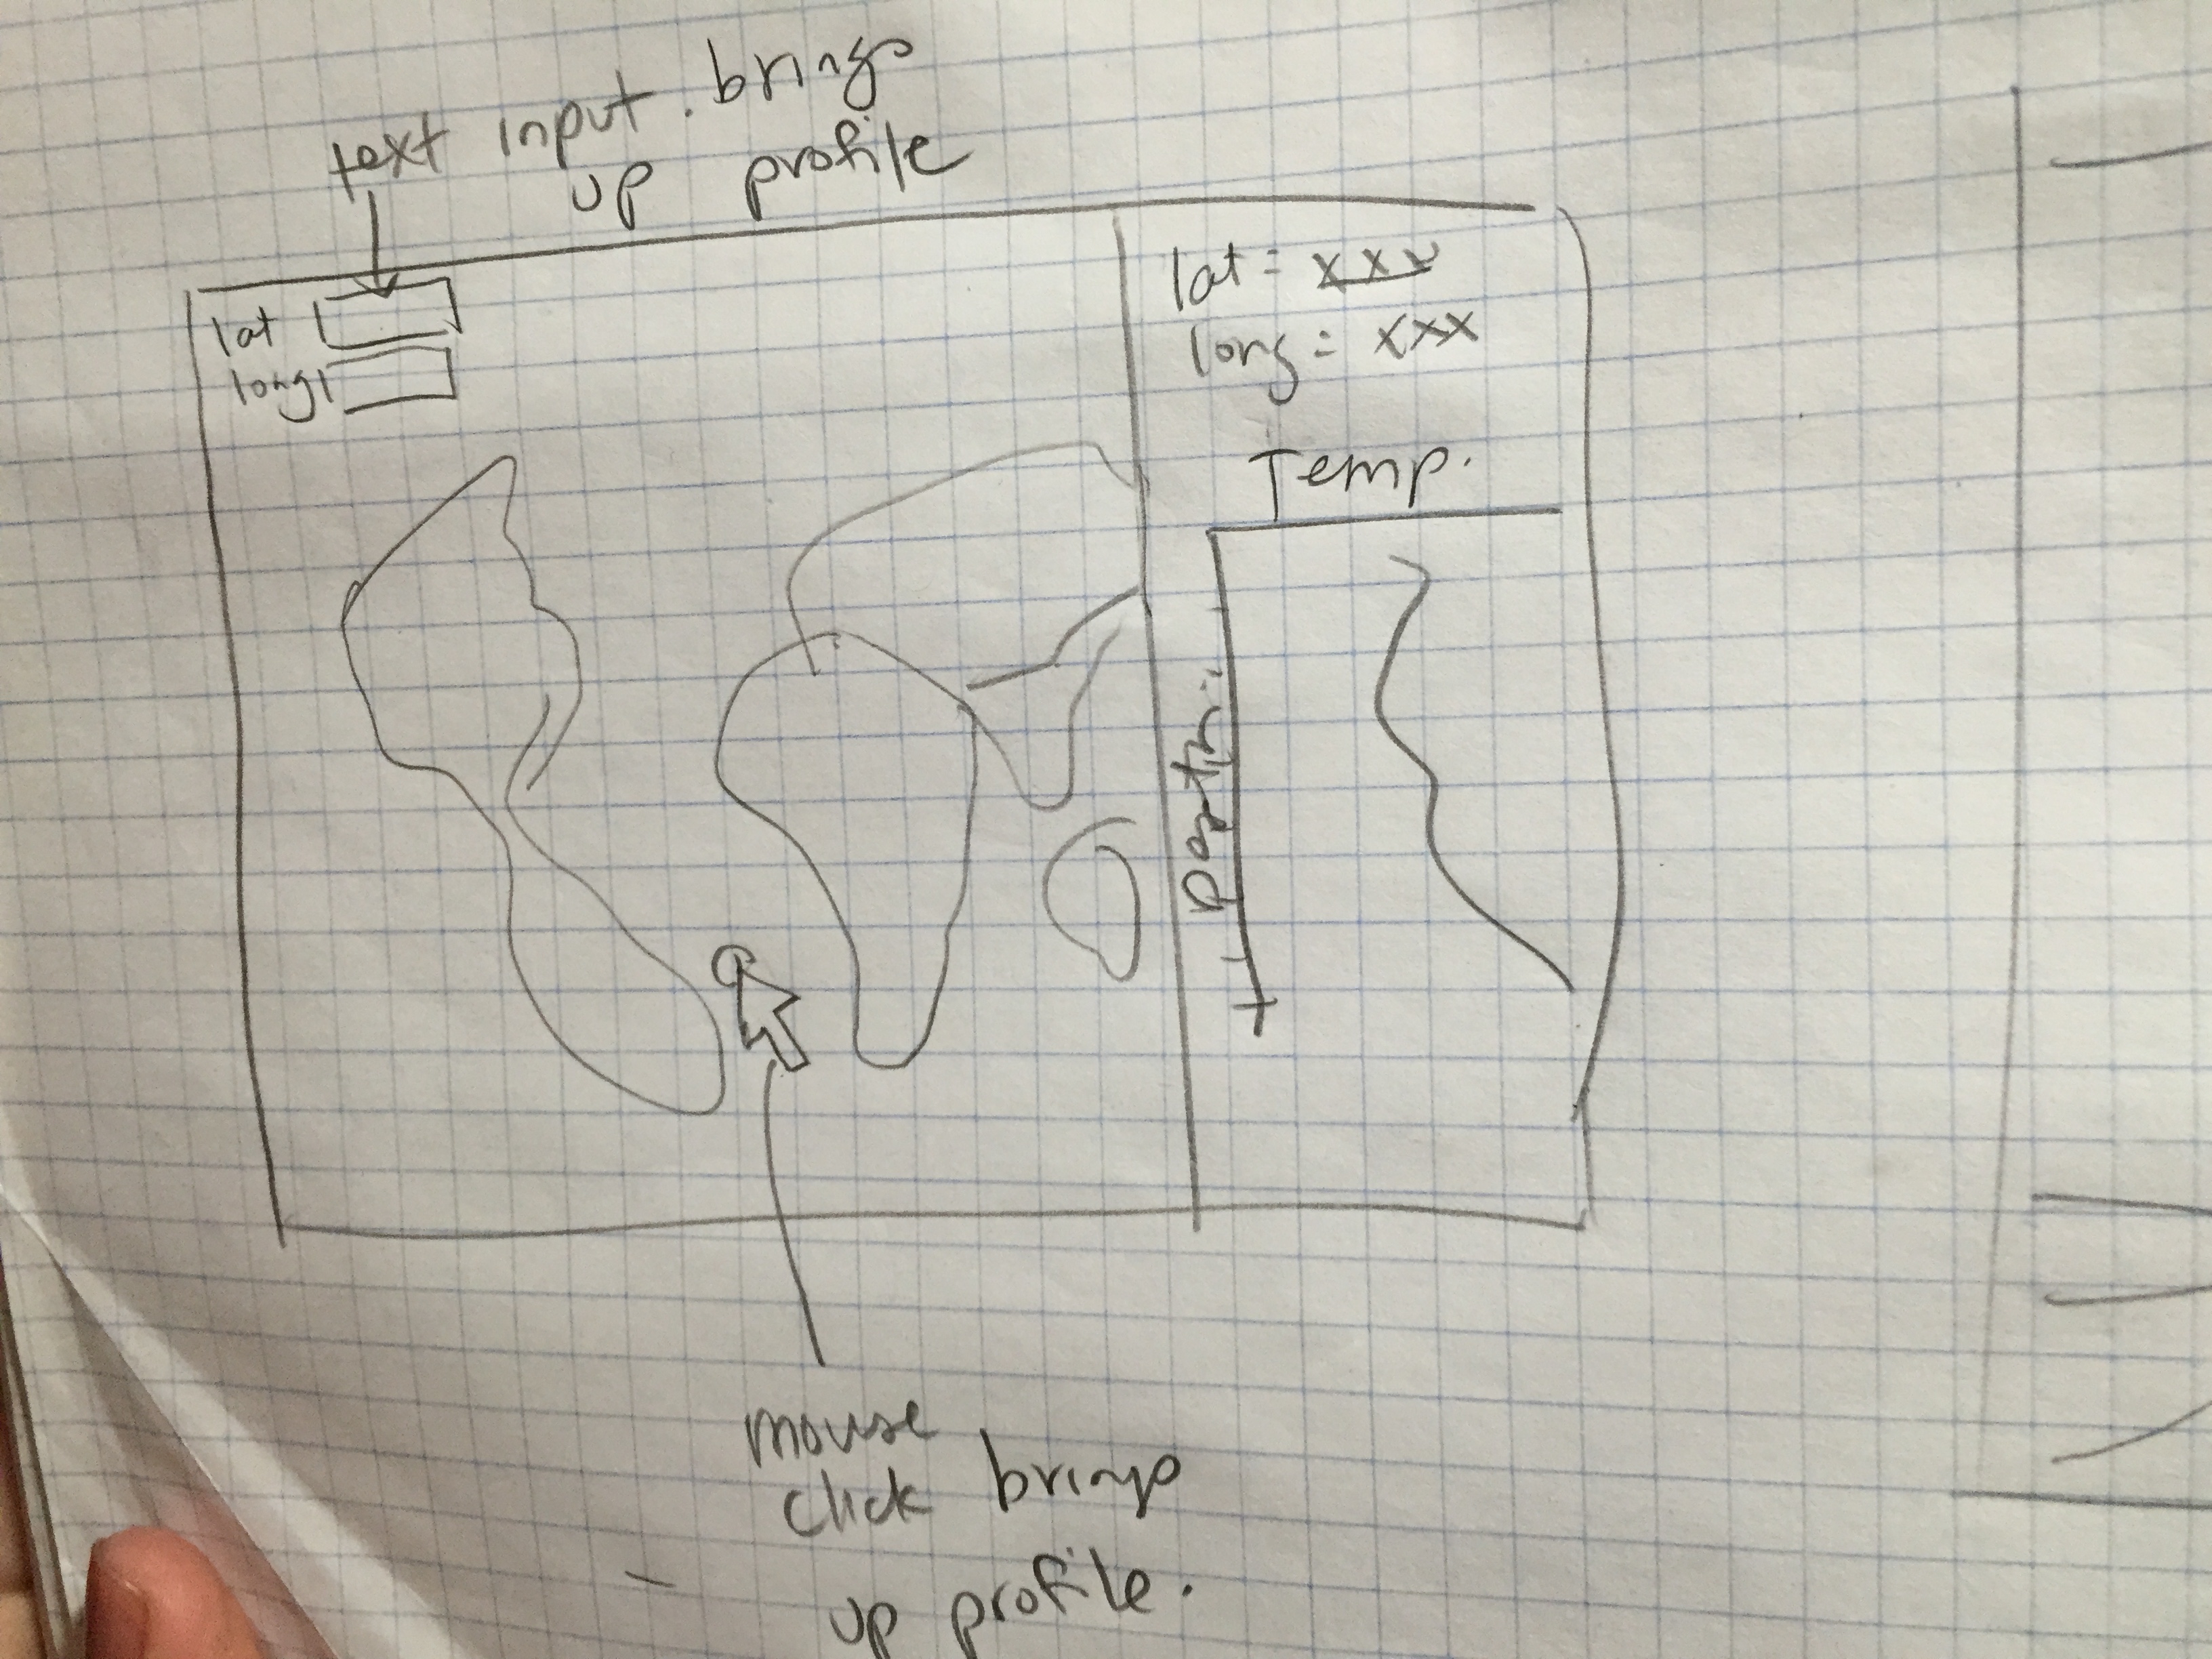 text input. brings
up profile
lat
long
lat = xxx
long = xxx
Temp.
mouse
click brings
up profile.